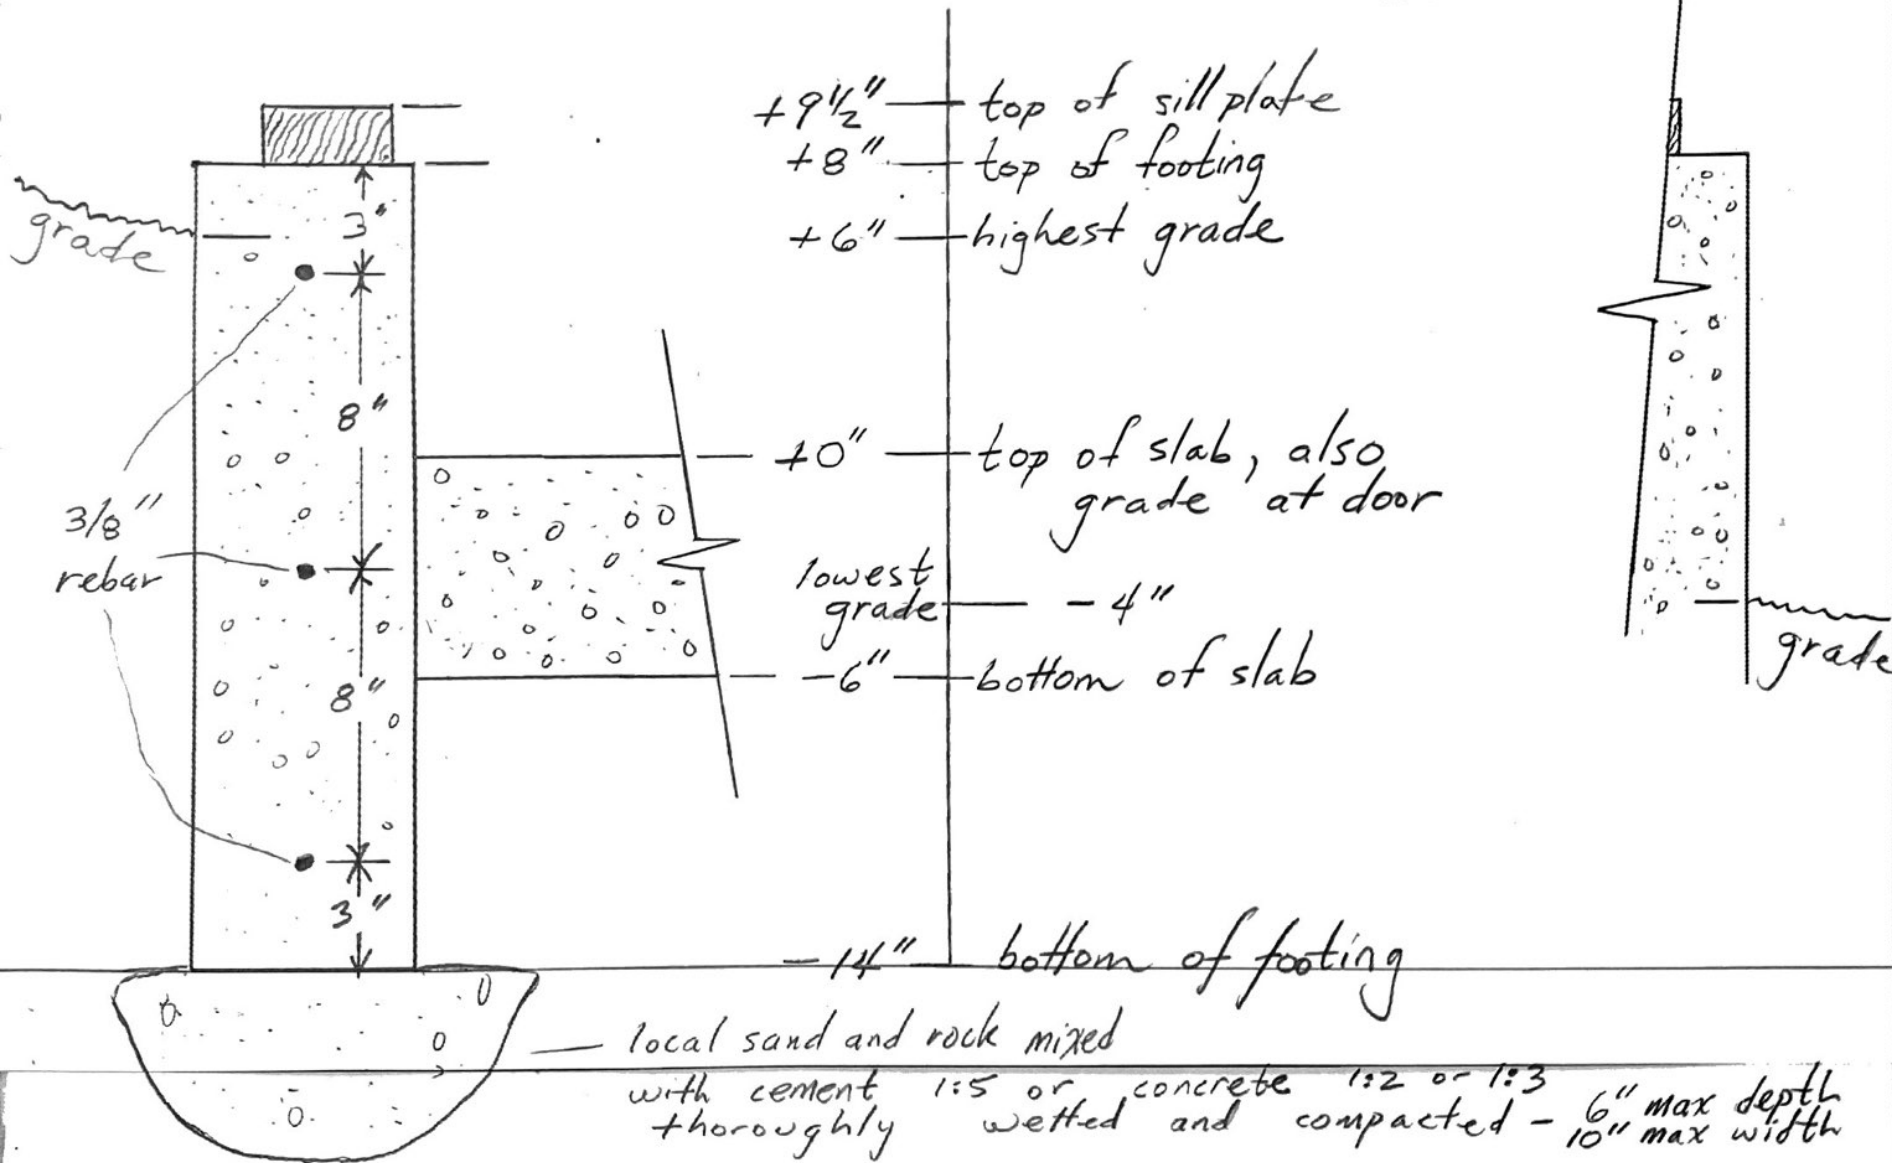 +9½" top of sill plate
+8" top of footing
+6" highest grade
grade
3"
8"
3/8"
rebar
8"
3"
+0" top of slab, also
grade at door
lowest
grade -4"
-6" bottom of slab
grade
-14" bottom of footing
local sand and rock mixed
with cement 1:5 or concrete 1:2 or 1:3
thoroughly wetted and compacted - 6" max depth
10" max width